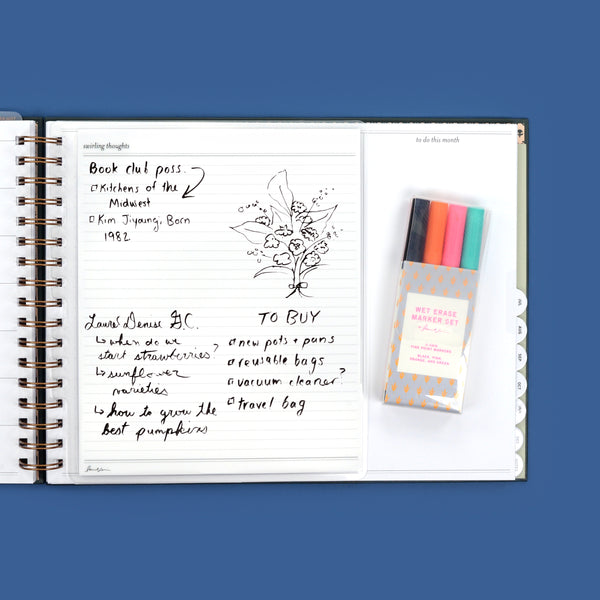 swirling thoughts
Book club poss.
Kitchens of the
Midwest
Kim Jiyoung, Born
1982
Laure' Denise G.C.
↳ when do we
start strawberries?
↳ sunflower
varieties
↳ how to grow the
best pumpkins
TO BUY
new pots + pans
reusable bags
vacuum cleaner?
travel bag
to do this month
WET ERASE
MARKER SET
FINE POINT MARKERS
BLACK, PINK,
ORANGE, AND GREEN
AUG
SEP
OCT